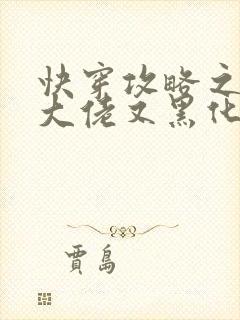 快穿攻略之
大佬又黑化
賈島